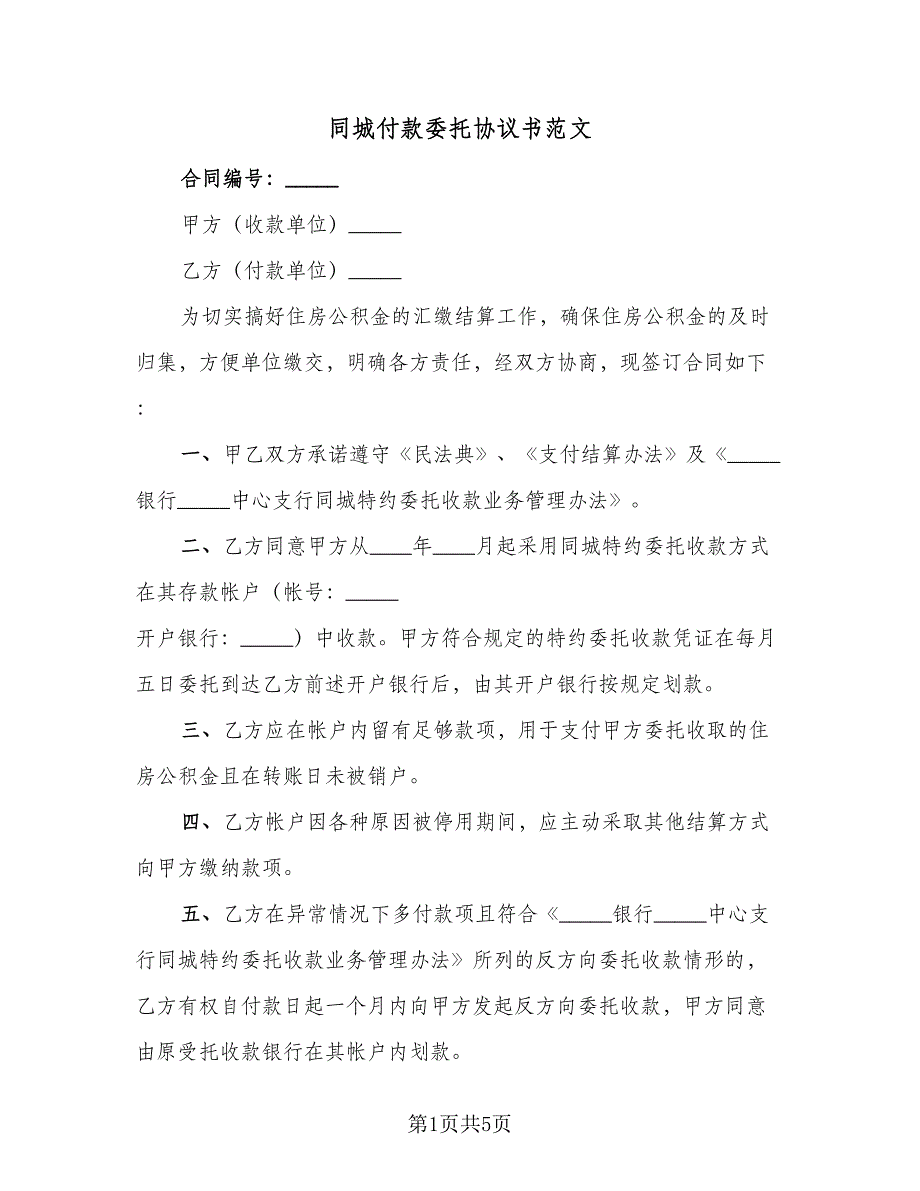 同城付款委托协议书范文
合同编号：_____
甲方（收款单位）_____
乙方（付款单位）_____
为切实搞好住房公积金的汇缴结算工作，确保住房公积金的及时
归集，方便单位缴交，明确各方责任，经双方协商，现签订合同如下
：
一、甲乙双方承诺遵守《民法典》、《支付结算办法》及《_____
银行_____中心支行同城特约委托收款业务管理办法》。
二、乙方同意甲方从____年____月起采用同城特约委托收款方式
在其存款帐户（帐号：_____
开户银行：_____）中收款。甲方符合规定的特约委托收款凭证在每月
五日委托到达乙方前述开户银行后，由其开户银行按规定划款。
三、乙方应在帐户内留有足够款项，用于支付甲方委托收取的住
房公积金且在转账日未被销户。
四、乙方帐户因各种原因被停用期间，应主动采取其他结算方式
向甲方缴纳款项。
五、乙方在异常情况下多付款项且符合《_____银行_____中心支
行同城特约委托收款业务管理办法》所列的反方向委托收款情形的，
乙方有权自付款日起一个月内向甲方发起反方向委托收款，甲方同意
由原受托收款银行在其帐户内划款。
第1页共5页